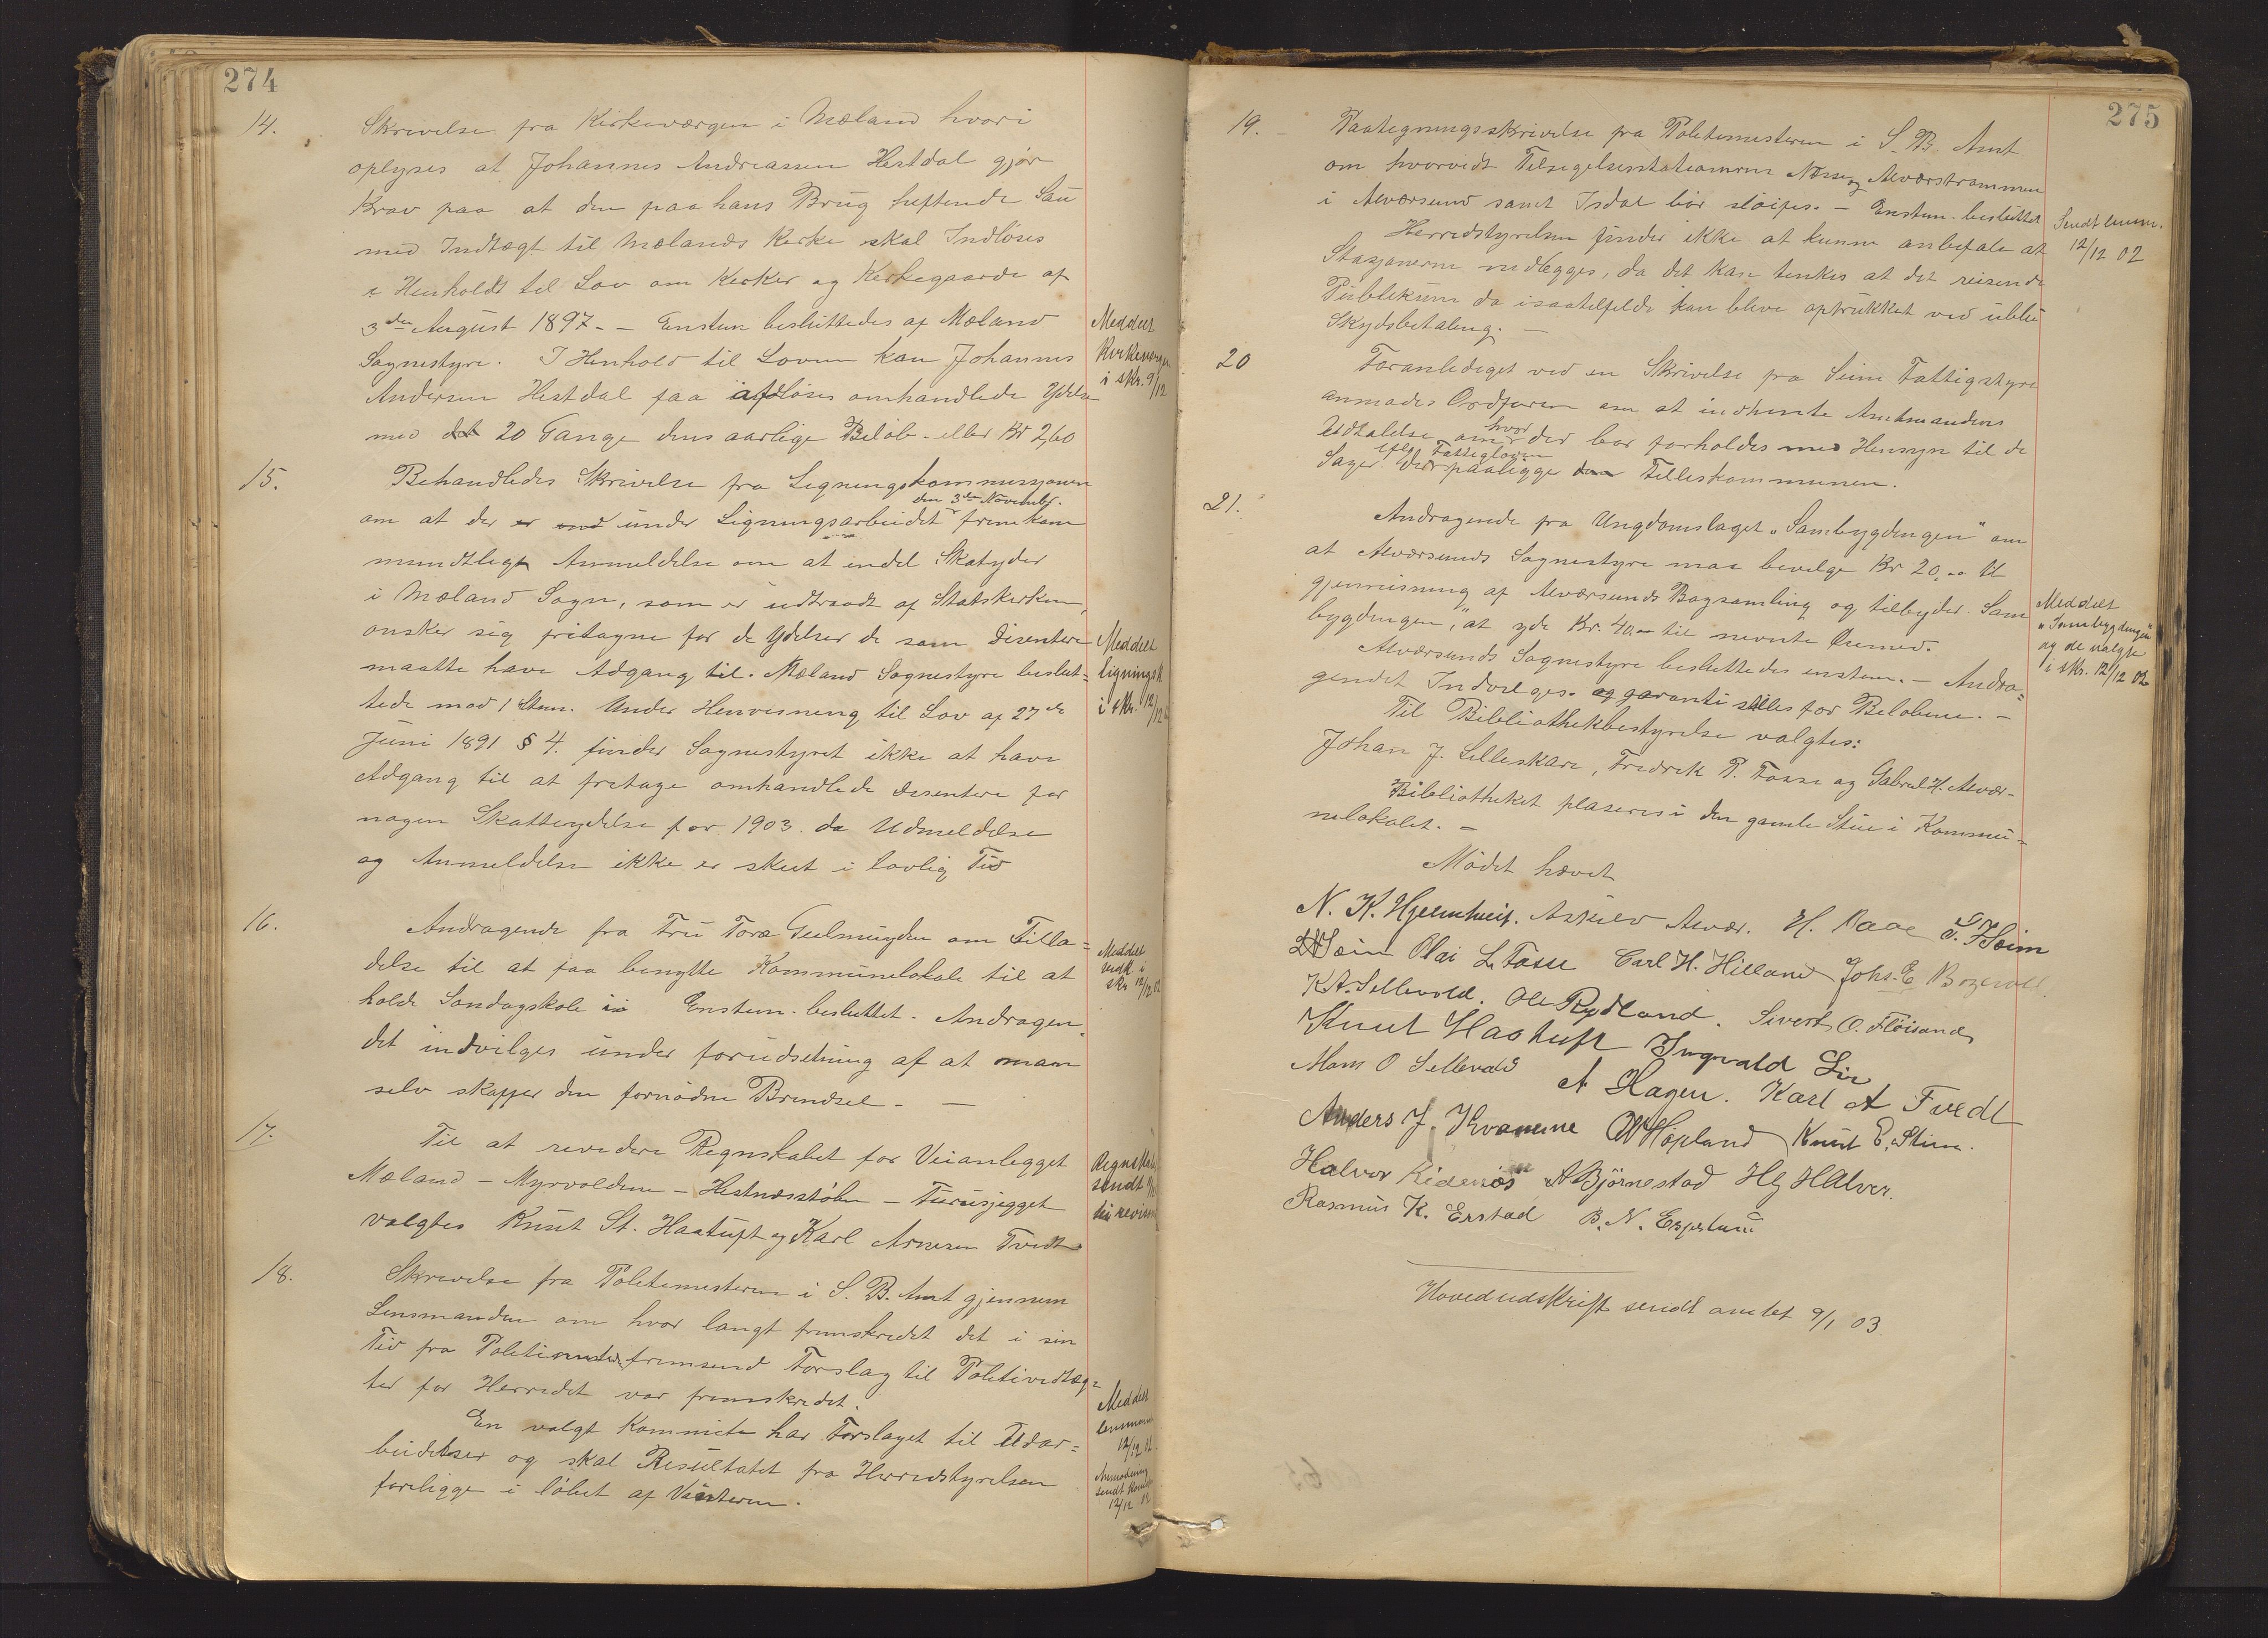 274
14. Skrivelse fra Kirkeværgen i Mæland hvori
oplyses at Johannes Andreassen Hestdal gjør
Krav paa at den paa hans Brug heftende Sau
med Indtægt til Mælands Kirke skal Indløses
i Henholdt til Lov om Kirker og Kirkegaarde af
3die August 1897. - Enstem besluttedes af Mæland
Sognestyre. I Henhold til Loven kan Johannes
Andersen Hestdal faa afløses omhandlede Ydelse
med det 20 Gange dens aarlige Beløb - eller Kr 2,60
Meddelt
Kirkeværgen
i skr. 9/12
15. Behandledes Skrivelse fra Ligningskommissjonen
den 3die November.
om at der er under Ligningsarbeidet fremkom
mundtlig Anmeldelse om at endel Skatyder
i Mæland Sogn, som er udtraadt af Statskirken,
ønsker sig fritagne for de Ydelser de som Disentere
maatte have Adgang til. Mæland Sognestyre beslut=
tede mod 1 Stem. Under Henvisning til Lov af 27de
Juni 1891 § 4. finder Sognestyret ikke at have
Adgang til at fritage omhandlede Disentere for
nogen Skatteydelse for 1903. da Udmeldelse
og Anmeldelse ikke er skeet i lovlig Tid
Meddelt
ligningsk
i skr. 12/12
16. Andragende fra Fru Tora Geelmuyden om Tilla=
delse til at faa benytte Kommunelokale til at
holde Søndagskole i Enstem. besluttet. Andragen=
det indvilges under forudsetning af at man
selv skaffer den fornødne Brendsel. —
Meddelt
vedk i
skr 12/12 02
17. Til at revidere Regnskabet for Veianlegget
Mæland - Myrvoldene - Hestnesstølen - Furusjegget
valgtes Knut St. Haatuft og Karl Arnesen Tvedt
Regnskab
sendt
til revision
18. Skrivelse fra Politimesteren i S. B. Amt gjennem
Lensmanden om hvor langt fremskredet det i sin
Tid fra Politi fremsend Forslag til Politivedtæg=
ter for Herredet var fremskredet.
En valgt Kommite har Forslaget til Udar=
beidelser og skal Resultatet fra Herredstyrelsen
foreligge i løbet af Vinteren.
Meddelt
lensmanden
12/12 02
Anmodning
sendt Komite
12/12 02
275
19. - Paategningsskrivelse fra Politimesteren i S. B. Amt
om hvorvidt Tilsigelsesstationerne Næsse og Alværstrømmen
i Alværsund samt Isdal bør sløifes. - Enstem. besluttet
Herredstyrelsen finder ikke at kunne anbefale at
Stasjonerne nedlægges, da det kan tenkes at det reisende
Publikum da isaatilfelde kan blive optrukket ved ublu
Skydsbetaling. —
Sendt lensm.
12/12 02
20 Foranlediget ved en Skrivelse fra Seim Fattigstyre
anmodes Ordføren om at indhente Amtmandens
Udtalelse om hvor der bør forholdes med Hensyn til de
Sager efter Fattigloven der paaligge Fælleskommunen.
21. Andragende fra Ungdomslaget „Sambygdingen" om
at Alværsunds Sognestyre maa bevilge Kr 20,00 til
gjenreisning af Alværsunds Bogsamling og tilbyder „Sam
bygdingen", at yde Kr. 40,00 til nevnte Øiemed.
Alværsunds Sognestyre besluttedes enstem. - Andra=
gendet Indvilges. og garanti stilles for Beløbene. —
Til Bibliothekbestyrelse valgtes:
Johan J. Lilleskare, Fredrik P. Fosse og Gabriel H. Alvær.
Bibliotheket plaseres i den gamle Stue i Kommu=
nelokalet. —
Meddelt
„Sambygdingen"
og de valgte
i skr. 12/12 02
Mødet hævet
N. K. Hjelmtveit. Askild Alvær. H. Raae T. Seim
Seim Olai L. Fosse Carl H. Hilland Johs. E Bozevold
K A. Sellevold. Ole Rydland. Sivert O. Fløisand
Knut Haatuft Ingvald Lie
Mons O Sellevold A Hagen. Karl A Tvedt
Anders J. Kvamme O Höpland Knut E. Stien.
Halvor Kidenøs A Bjørnestad H Halver.
Rasmus K. Erstad B. N. Espetun
Hovedudskrift sendt amtet 9/1 03